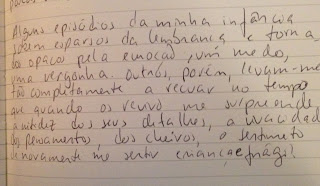 Alguns episódios da minha infância
saem esparsos da lembrança e torna
do opaco pela emoção, um medo,
uma vergonha. Outros, porém, levam-me
tão completamente a recuar no tempo
que quando os revivo me surpreende
a nitidez dos seus detalhes, a vivacidade
do pensamento, dos cheiros, o sentimento
de novamente me sentir criança e frágil.